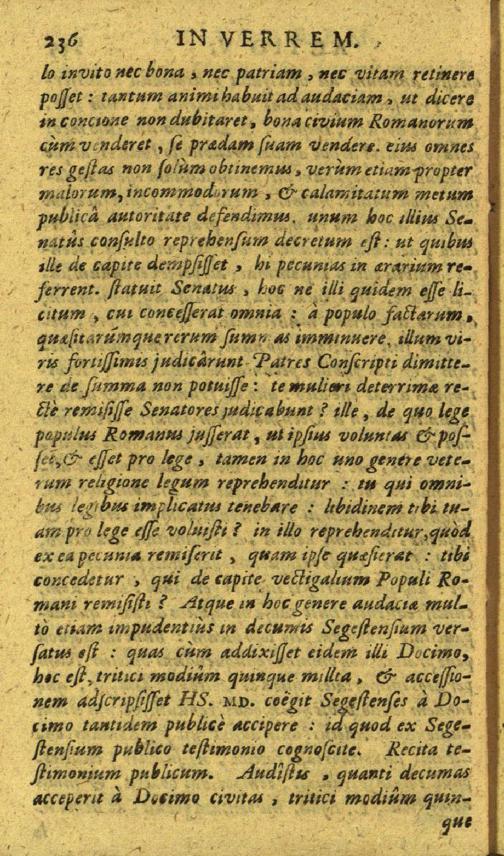 236 IN VERREM.
lo invito nec bona, nec patriam, nec vitam retinere
posset: tantum animi habuit ad audaciam, ut dicere
in concione non dubitaret, bona civium Romanorum
cùm venderet, se prædam suam vendere. eius omnes
res gestas non solùm obtinemus, verùm etiam propter
malorum, incommodorum, & calamitatum metum
publicâ autoritate defendimus. unum hoc illius Se-
natûs consulto reprehensum decretum est: ut quibus
ille de capite dempsisset, hi pecunias in ærarium re-
ferrent. statuit Senatus, hoc ne illi quidem esse li-
citum, cui concesserat omnia: à populo factarum,
quæsitarúmque rerum summas imminuere. illum vi-
ris fortissimis judicârunt Patres Conscripti dimitte-
re de summa non potuisse: te mulieri deterrimæ re-
ctè remisisse Senatores judicabunt? ille, de quo lege
populus Romanus jusserat, ut ipsius voluntas & pos-
set, & esset pro lege, tamen in hoc uno genere vete-
rum religione legum reprehenditur: tu qui omni-
bus legibus implicatus tenebare: libidinem tibi tu-
am pro lege esse voluisti? in illo reprehenditur, quòd
ex ea pecunia remiserit, quam ipse quæsierat: tibi
concedetur, qui de capite vectigalium Populi Ro-
mani remisisti? Atque in hoc genere audaciæ mul-
tò etiam impudentiùs in decumis Segestensium ver-
satus est: quas cùm addixisset eidem illi Docimo,
hoc est, tritici modiûm quinque millia, & accessio-
nem adscripsisset HS. MD. coëgit Segestenses à Do-
cimo tantidem publicè accipere: id quod ex Sege-
stensium publico testimonio cognoscite. Recita te-
stimonium publicum. Audîstis, quanti decumas
acceperit à Docimo civitas, tritici modiûm quin-
que